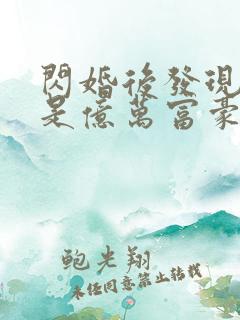 閃婚後發現
是億萬富豪
鮑光翔
未經同意禁止轉載